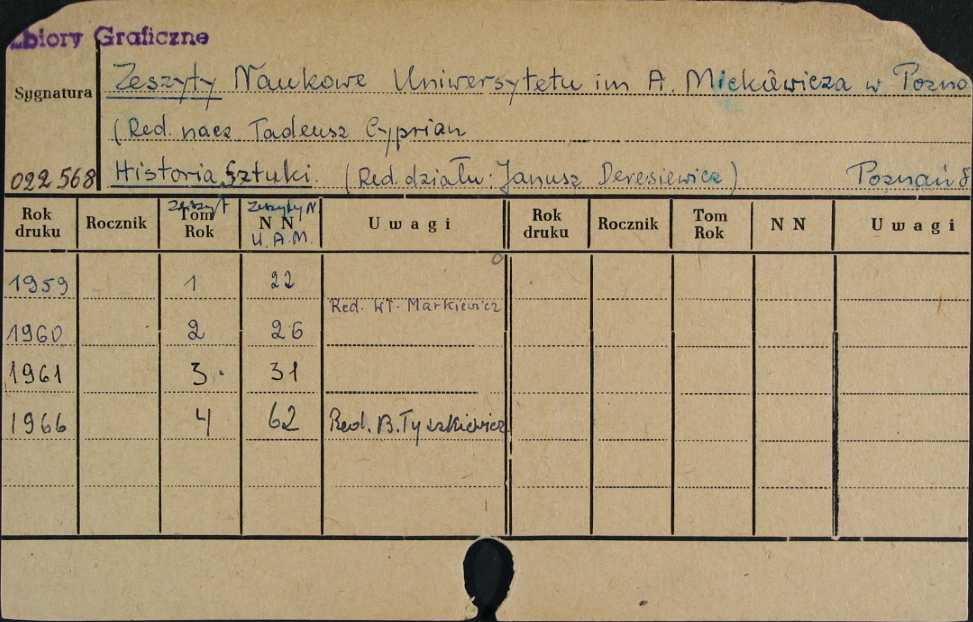 Zbiory Graficzne
Sygnatura
022568
Zeszyty Naukowe Uniwersytetu im A. Mickiewicza w Pozna
(Red. nacz Tadeusz Cyprian
Historia Sztuki. (Red. działu: Janusz Deresiewicz) Poznań 8
Rok druku Rocznik Zeszyt Tom Rok Zeszyty N. N N U.A.M. Uwagi Rok druku Rocznik Tom Rok N N Uwagi
1959 1 22
Red. Wł. Markiewicz
1960 2 26
1961 3. 31
1966 4 62 Red. B. Tyszkiewicz